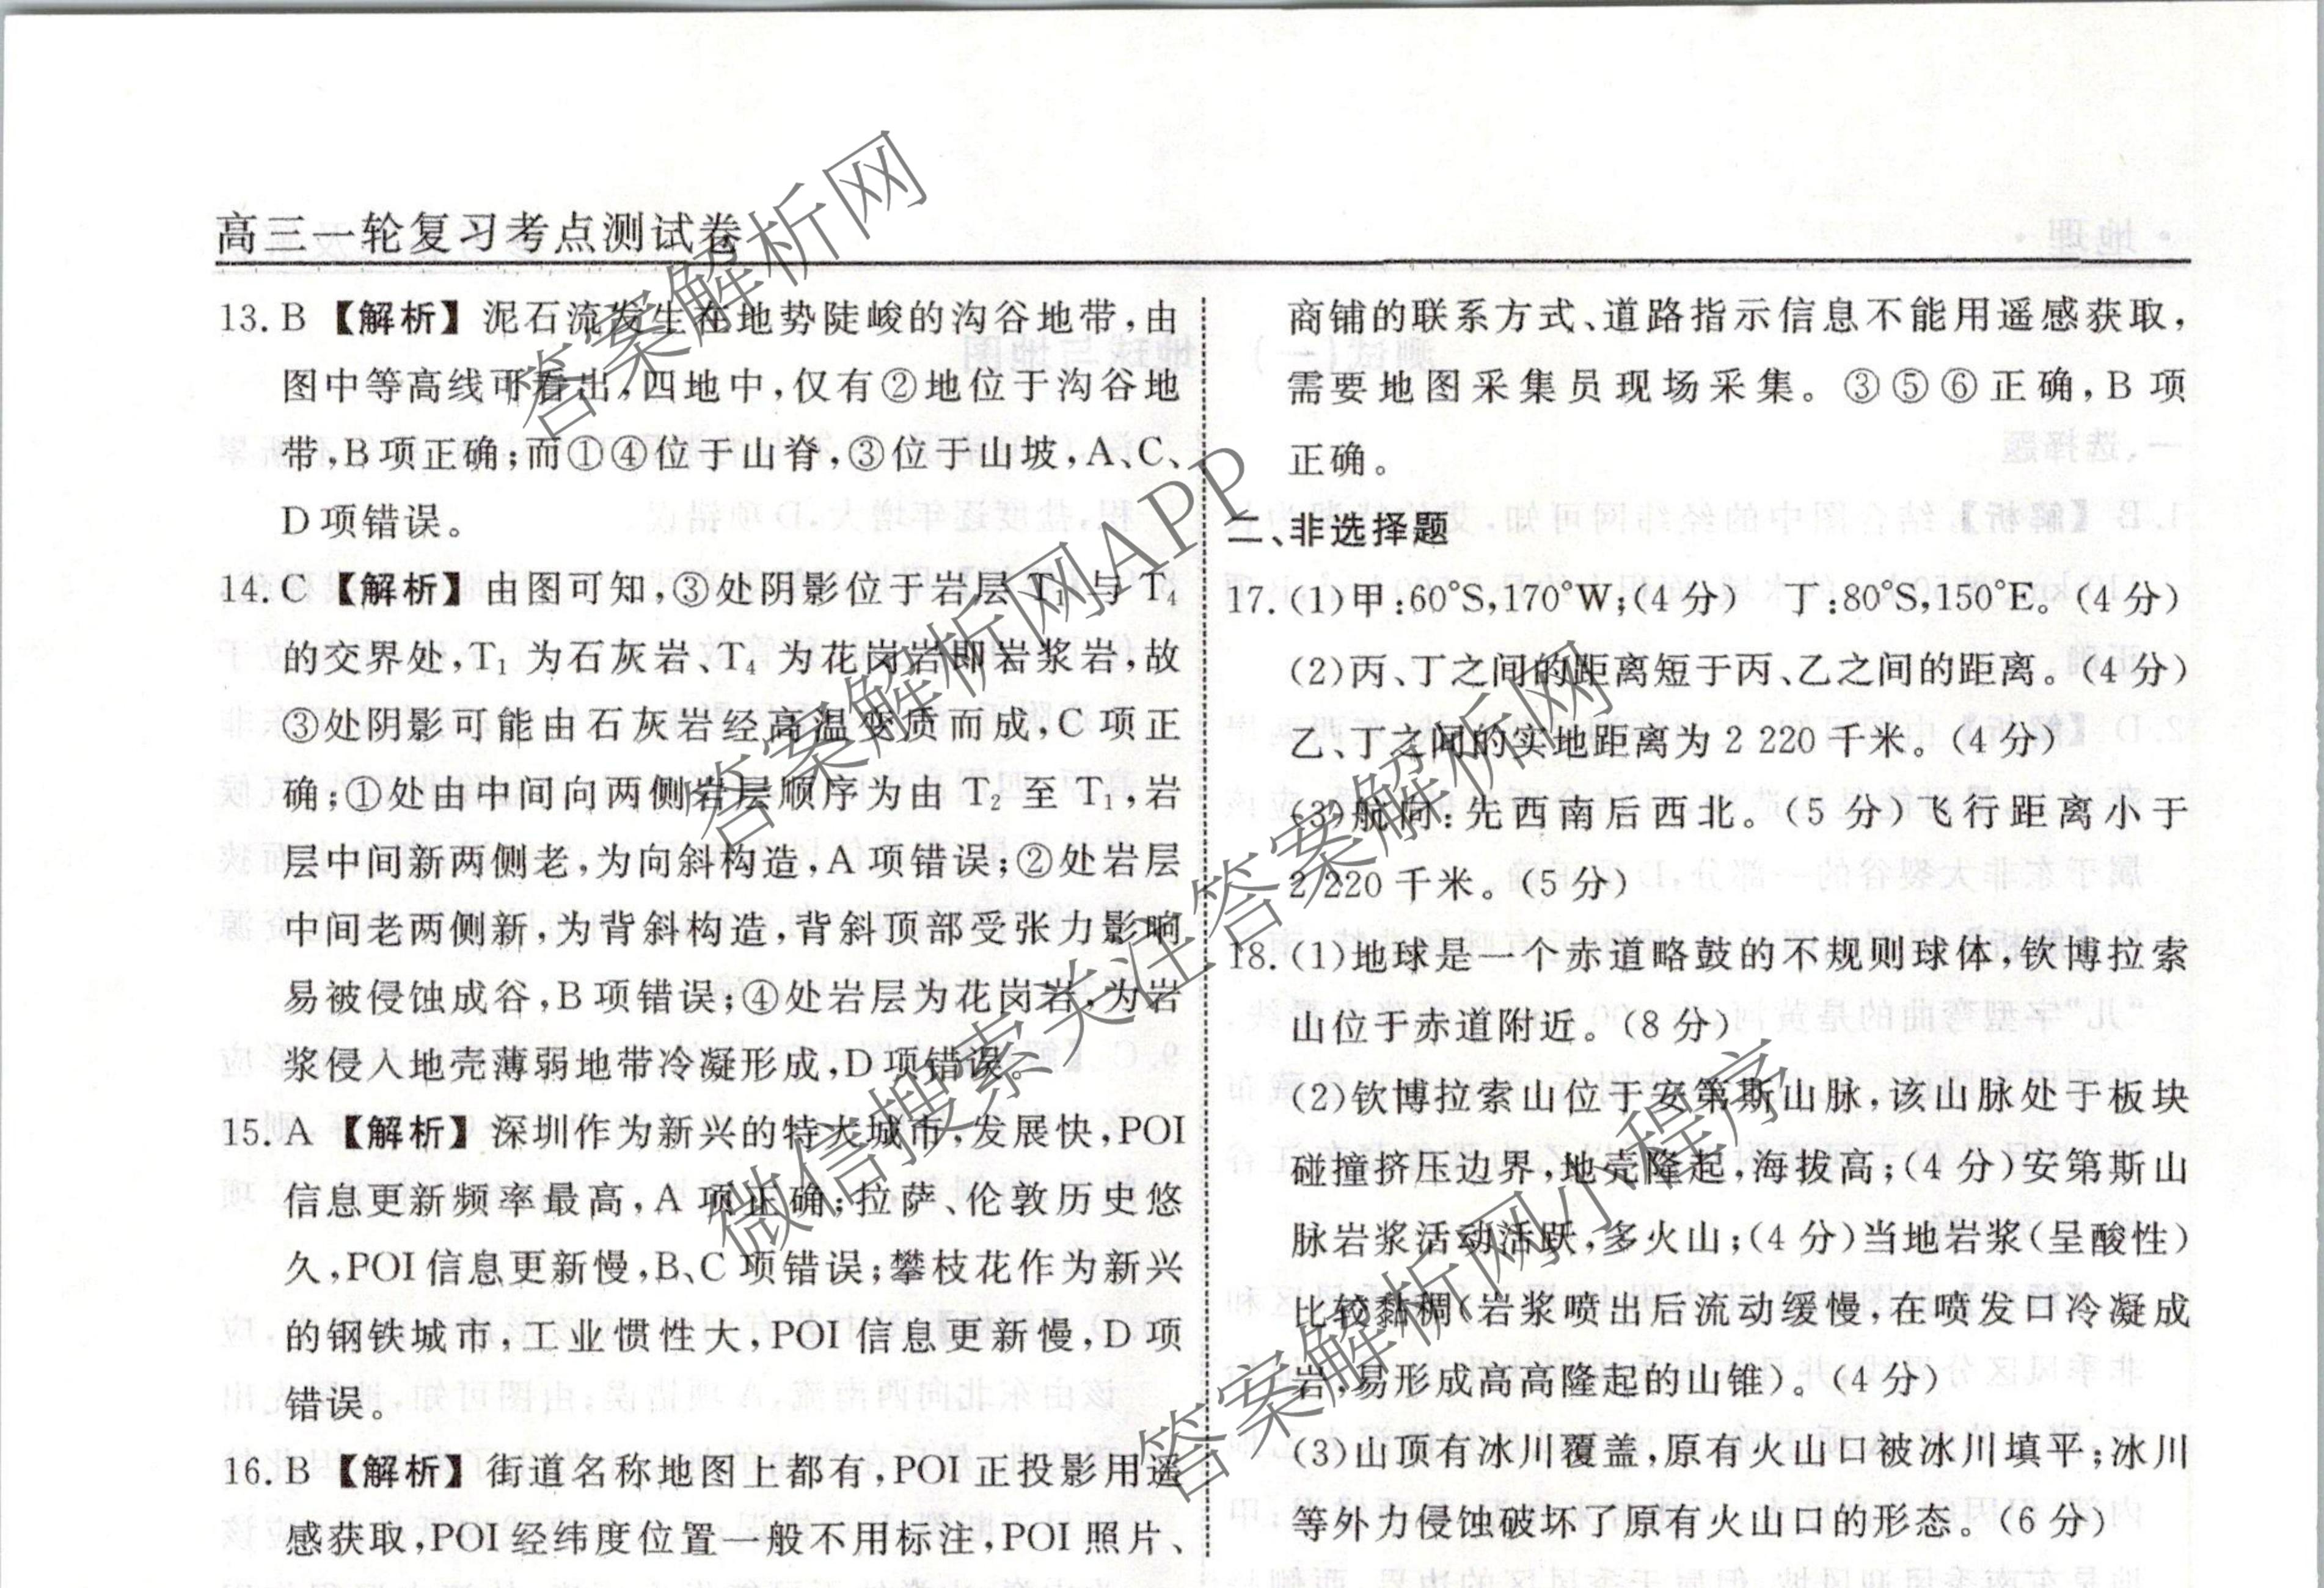 高三一轮复习考点测试卷
13. B 【解析】 泥石流发生在地势陡峻的沟谷地带,由
图中等高线可看出,四地中,仅有②地位于沟谷地
带,B项正确;而①④位于山脊,③位于山坡,A、C、
D项错误。
14. C 【解析】 由图可知,③处阴影位于岩层 T₁ 与 T₄
的交界处,T₁ 为石灰岩、T₄ 为花岗岩即岩浆岩,故
③处阴影可能由石灰岩经高温变质而成,C项正
确;①处由中间向两侧岩层顺序为由 T₂ 至 T₁,岩
层中间新两侧老,为向斜构造,A项错误;②处岩层
中间老两侧新,为背斜构造,背斜顶部受张力影响
易被侵蚀成谷,B项错误;④处岩层为花岗岩,为岩
浆侵入地壳薄弱地带冷凝形成,D项错误。
15. A 【解析】 深圳作为新兴的特大城市,发展快,POI
信息更新频率最高,A项正确;拉萨、伦敦历史悠
久,POI信息更新慢,B、C项错误;攀枝花作为新兴
的钢铁城市,工业惯性大,POI信息更新慢,D项
错误。
16. B 【解析】 街道名称地图上都有,POI正投影用遥
感获取,POI经纬度位置一般不用标注,POI照片、
商铺的联系方式、道路指示信息不能用遥感获取,
需要地图采集员现场采集。③⑤⑥正确,B项
正确。
二、非选择题
17. (1)甲:60°S,170°W;(4分) 丁:80°S,150°E。(4分)
(2)丙、丁之间的距离短于丙、乙之间的距离。(4分)
乙、丁之间的实地距离为2 220千米。(4分)
(3)航向:先西南后西北。(5分)飞行距离小于
2 220千米。(5分)
18. (1)地球是一个赤道略鼓的不规则球体,钦博拉索
山位于赤道附近。(8分)
(2)钦博拉索山位于安第斯山脉,该山脉处于板块
碰撞挤压边界,地壳隆起,海拔高;(4分)安第斯山
脉岩浆活动活跃,多火山;(4分)当地岩浆(呈酸性)
比较黏稠(岩浆喷出后流动缓慢,在喷发口冷凝成
岩,易形成高高隆起的山锥)。(4分)
(3)山顶有冰川覆盖,原有火山口被冰川填平;冰川
等外力侵蚀破坏了原有火山口的形态。(6分)
答案解析网
答案解析网APP
微信搜索关注答案解析网
答案解析网小程序